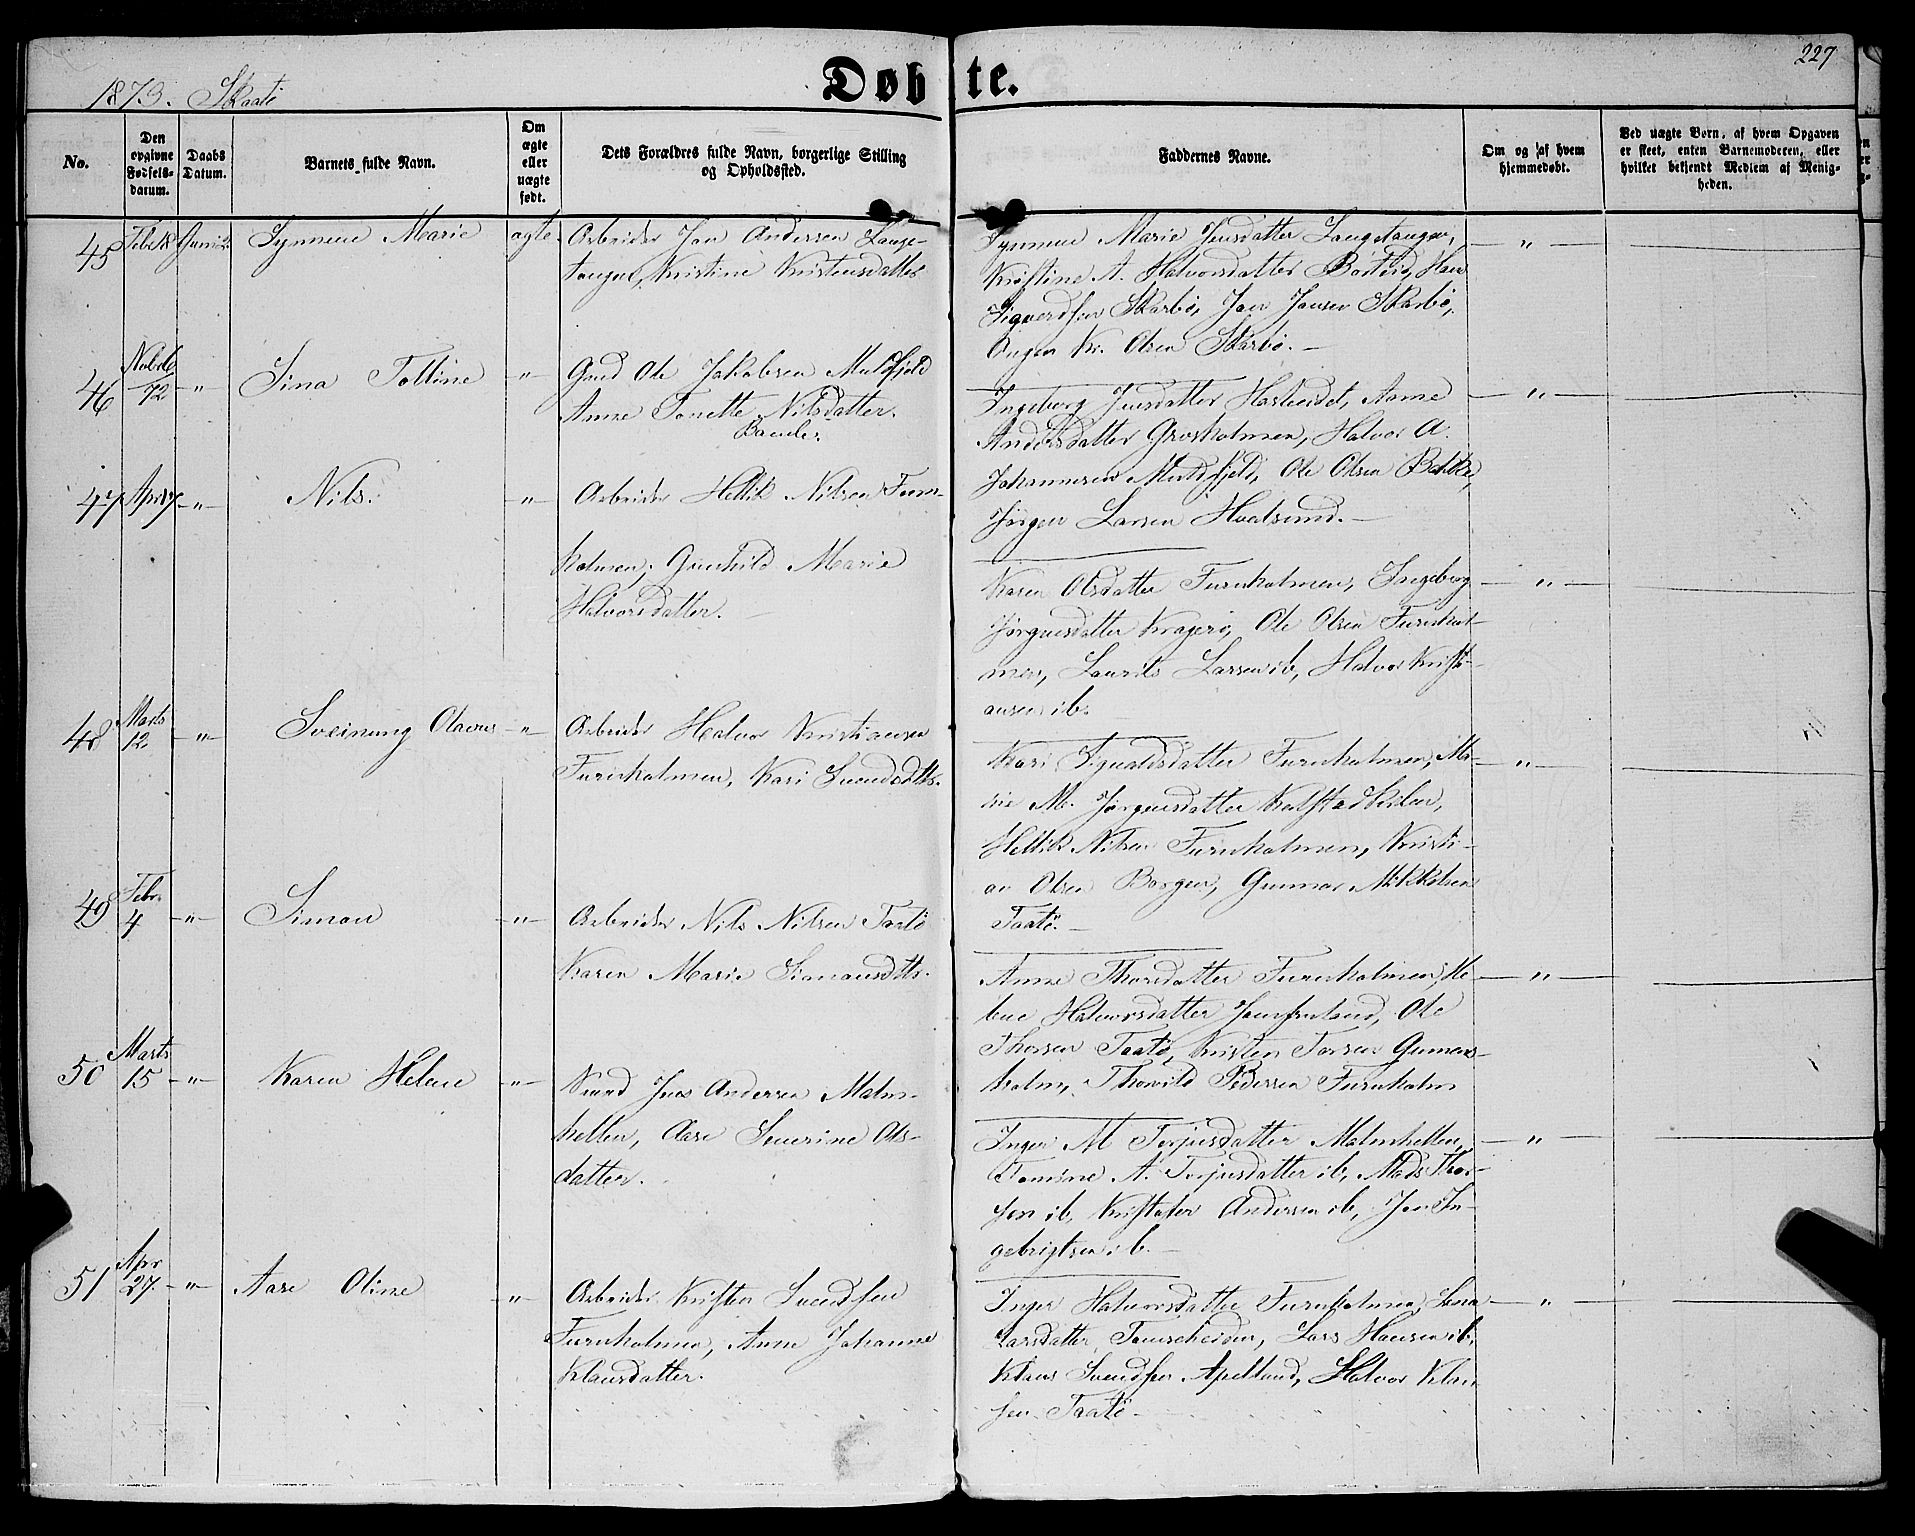 227
1873. Skaatö
Døbte.
No.
Den opgivne Fødselsdatum.
Daabs Datum.
Barnets fulde Navn.
Om ægte eller uægte født.
Dets Forældres fulde Navn, borgerlige Stilling og Opholdssted.
Faddernes Navne.
Om og af hvem hjemmedøbt.
Ved uægte Børn, af hvem Opgaven er skeet, enten Barnemoderen, eller hvilket bekjendt Medlem af Menigheden.
45 Synnene Marie ægte.
Arbeider Jan Andersen Lange-
tangen, Kristine Kristensdatter
Synnene Marie Jensdatter Langetangen,
Kristine A. Halvorsdatter
Sigverdsen Skarbö, Jan Jansen Skarbö,
Kr. Olsen Skarbö. —
46 72 " Sina Tolline "
Ole Jakobsen
Anne Tonette Nilsdatter.
Ingeborg Jensdatter Anne
Andersdatter Halvor A.
Johannesen Ole Olsen
Jørgen Larsen Hvalsund. —
47 April " Nils. "
Arbeider Hellik Nilsen Furu-
holmen, Gunhild Marie
Halvorsdatter.
Karen Olsdatter Furuholmen, Ingeborg
Jørgensdatter Kragerö, Ole Olsen Furuhol-
men, Laurits Larsen ib, Halvor Kristi-
ansen ib.
48 Marts 12. " Sveinung Olavus "
Arbeider Halvor Kristiansen
Furuholmen, Kari Svendsdtts.
Kari Furuholmen, Ma-
rie M. Jørgensdatter
Hellik Nilsen Furuholmen, Kristi-
an Olsen Borgen, Gunnar Mikkelsen
Taatö. —
49 Febr. 4 " Simon "
Arbeider Nils Nilsen Taatö
Karen Marie Simonsdttr.
Anne Thorsdatter Furuholmen, He-
lene Halvorsdatter Jomfruland, Ole
Thorsen Taatö, Kristen Torsen Gumøe-
holm, Thorvild Pedersen Furuholm
50 Marts 15 " Karen Helene "
Jens Andersen Malm-
hellen, Aase Severine Ols-
datter.
Inger M Terjesdatter Malmhellen,
Tomine A. Terjesdatter ib, Mads Thor-
sen ib, Kristofer Andersen ib, Jan In-
gebrigtsen ib. —
51 Apr 27. " Aase Oline "
Arbeider Kristen Svendsen
Furuholmen, Anne Johanne
Klausdatter.
Inger Halvorsdatter Furuholmen, Lena
Larsdatter Lars Hansen ib,
Klaus Svendsen Apelland, Halvor Klau-
sen Taatö —